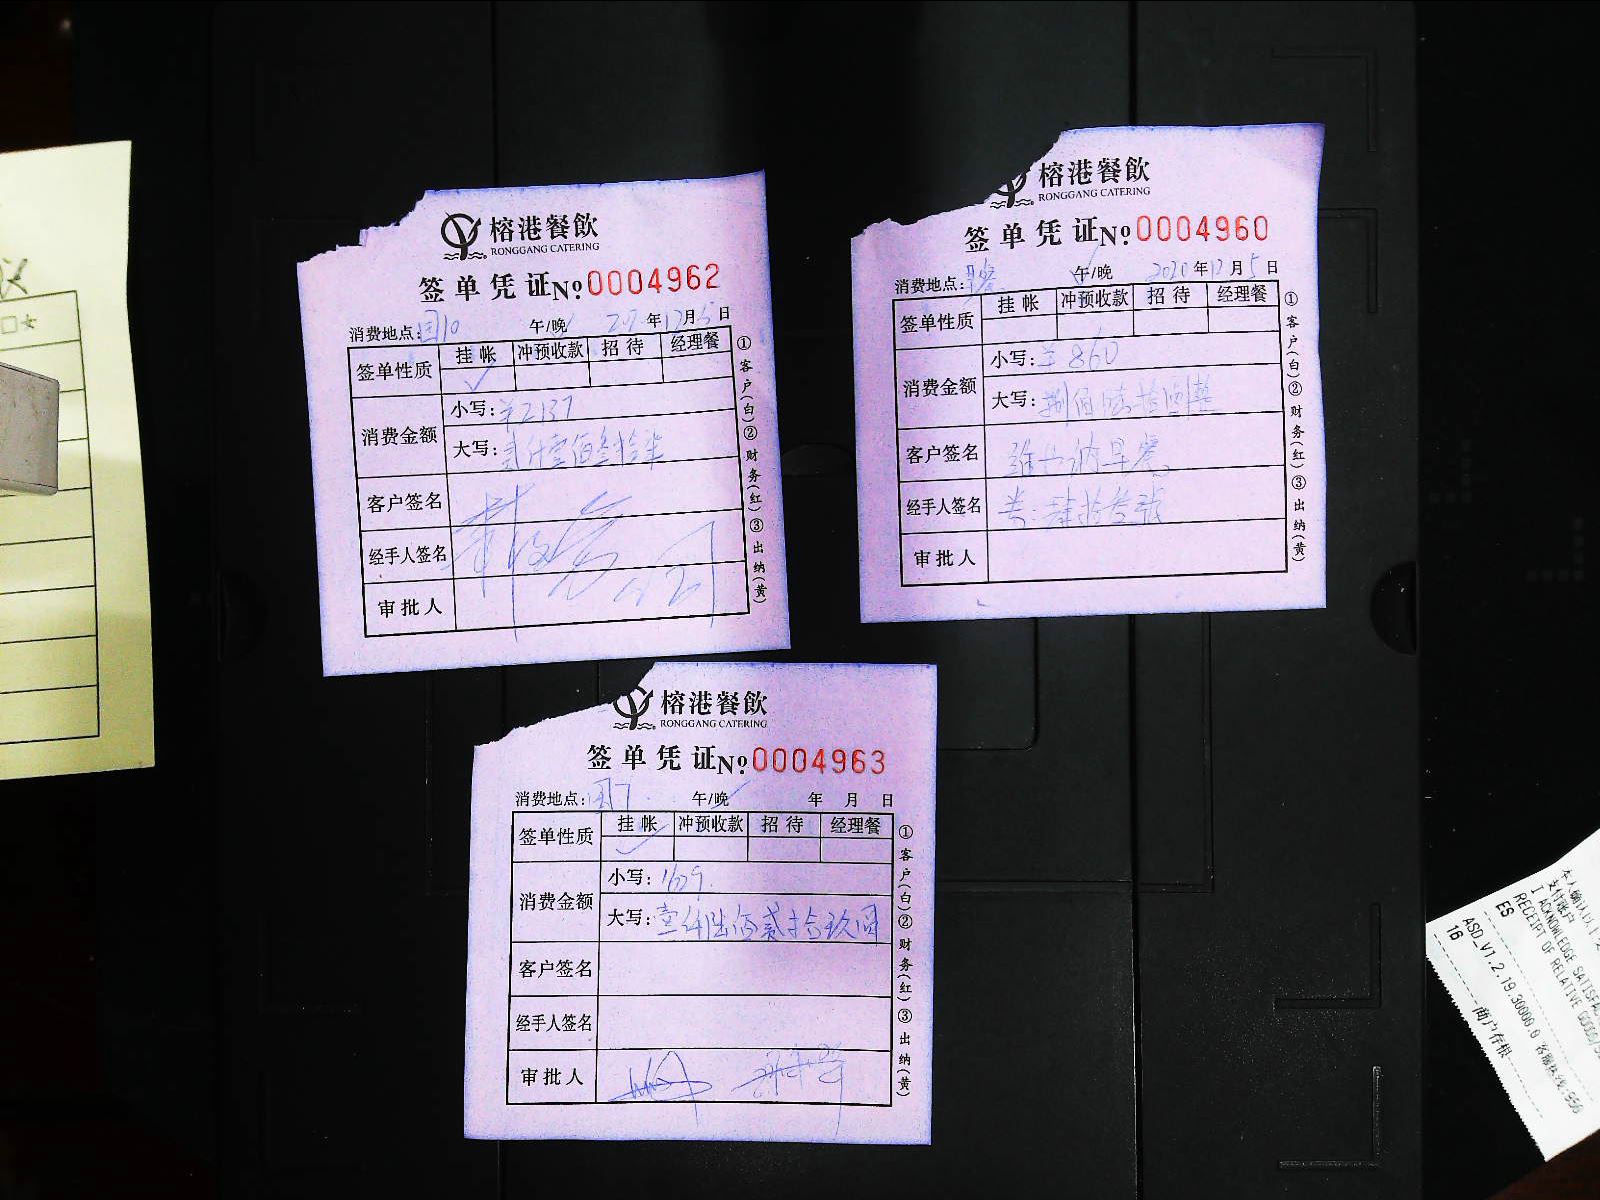 榕港餐飲
RONGGANG CATERING
签单凭证№0004962
消费地点: 午/晚 年12月5日
签单性质 挂帐 冲预收款 招待 经理餐
✓
消费金额 小写:¥2137
大写:贰仟壹佰叁拾柒
客户签名
经手人签名
审批人
①客户(白)②财务(红)③出纳(黄)
榕港餐飲
RONGGANG CATERING
签单凭证№0004960
消费地点:早餐 午/晚 2020年12月5日
签单性质 挂帐 冲预收款 招待 经理餐
消费金额 小写:¥860
大写:捌佰陆拾圆整
客户签名 维也纳早餐
经手人签名 共:肆拾叁张
审批人
①客户(白)②财务(红)③出纳(黄)
榕港餐飲
RONGGANG CATERING
签单凭证№0004963
消费地点: 午/晚 年 月 日
签单性质 挂帐 冲预收款 招待 经理餐
✓
消费金额 小写:1629
大写:壹仟陆佰贰拾玖圆
客户签名
经手人签名
审批人
①客户(白)②财务(红)③出纳(黄)
□女
本人确认以上
支付账户
I ACKNOWLEDGE SATISFA
RECEIPT OF RELATIVE GOODS/S
ES
ASD_V1.2.19.30000.0
16
商户存根